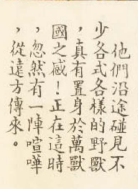 他們沿途碰見不
少各式各樣的野獸
，真有置身於萬獸
國之感！正在這時
，忽然有一陣喧嘩
，從遠方傳來。